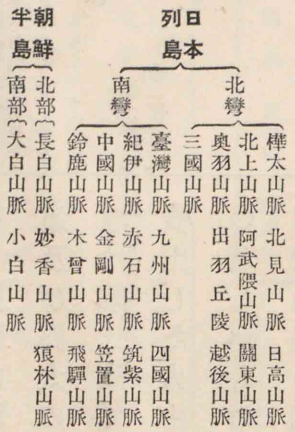 日本
列島
北彎
樺太山脈 北見山脈 日高山脈
北上山脈 阿武隈山脈 關東山脈
奧羽山脈 出羽丘陵 越後山脈
三國山脈
南彎
臺灣山脈 九州山脈 四國山脈
紀伊山脈 赤石山脈 筑紫山脈
中國山脈 金剛山脈 笠置山脈
鈴鹿山脈 木曾山脈 飛驒山脈
朝鮮
半島
北部
長白山脈 妙香山脈 狼林山脈
南部
大白山脈 小白山脈